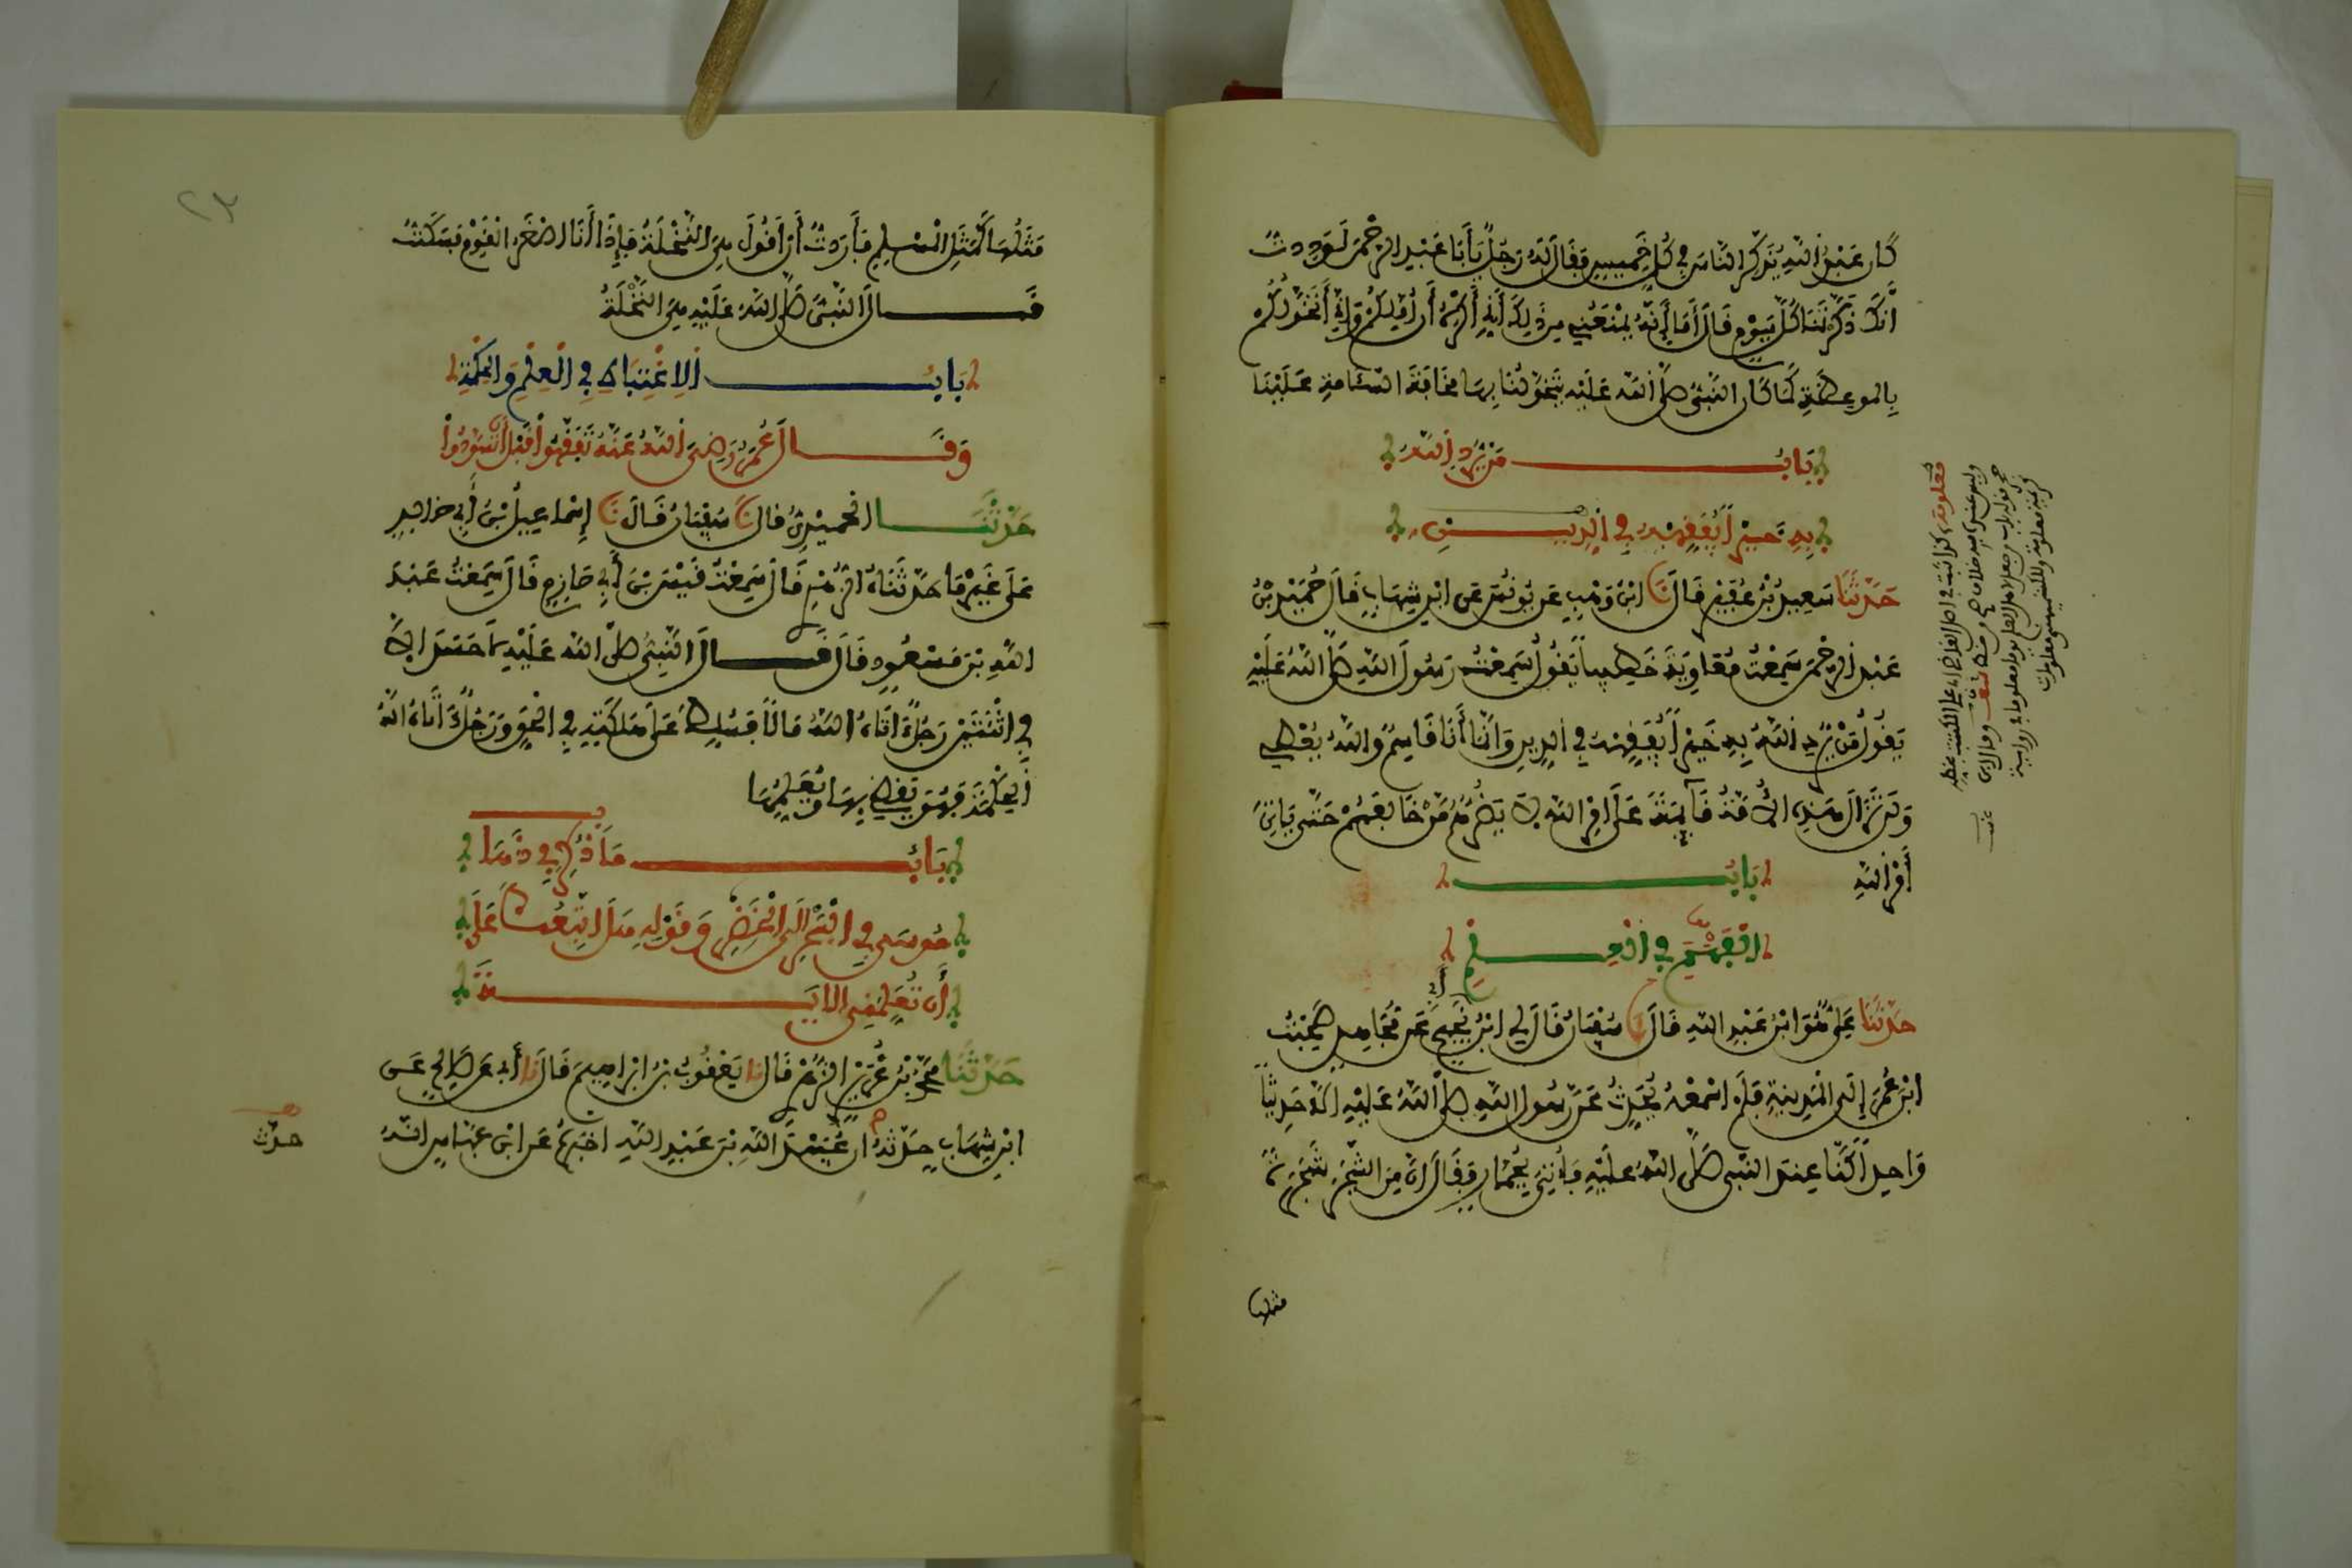 كَانَ عَبْدُ اللَّهِ يُذَكِّرُ النَّاسَ فِي كُلِّ خَمِيسٍ فَقَالَ لَهُ رَجُلٌ يَا أَبَا عَبْدِ الرَّحْمَنِ لَوَدِدتُّ
أَنَّكَ ذَكَّرْتَنَا كُلَّ يَوْمٍ قَالَ أَمَا إِنَّهُ يَمْنَعُنِي مِن ذَلِكَ أَنِّي أَكْرَهُ أَنْ أُمِلَّكُمْ وَإِنِّي أَتَخَوَّلُكُم
بِالموعِظَةِ كَمَا كَانَ النَّبِيُّ صَلَّى اللَّه عَلَيْهِ يَتَخَوَّلُنَا بِهَا مَخَافَةَ السَّئَامَةِ عَلَيْنَا
بَابُ مَنْ يُّرِدِ اللَّهُ
بِهِ خَيْرًا يُفَقِّهْهُ فِي الدِّينِ
حَدَّثَنَا سَعِيدُ بْنُ عُفَيْرٍ قَالَ نَا ابْنُ وَهْبٍ عَن يُونُسَ عَنِ ابْنِ شِهَابٍ قَالَ حُمَيْدُ بْنُ
عَبْدِ الرَّحْمَنِ سَمِعْتُ مُعَاوِيَةَ خَطِيبًا يَقُولُ سَمِعْتُ رَسُولَ اللَّهِ صَلَّى اللَّهُ عَلَيْهِ
يَقُولُ مَنْ يُّرِدِ اللَّهُ بِهِ خَيْرًا يُفَقِّهْهُ فِي الدِّينِ وَإِنَّمَا أَنَا قَاسِمٌ وَاللَّهُ يُعْطِي
وَلَن تَزَالَ هَذِهِ الأُمَّةُ قَائِمَةً عَلَى أَمْرِ اللَّهِ لَا يَضُرُّهُم مَّنْ خَالَفَهُمْ حَتَّى يَاتِيَ
أَمْرُ اللَّهِ
بَابُ
الْفَهْمِ فِي الْعِلْمِ
حَدَّثَنَا عَلِيٌّ هُوَ ابْنُ عَبْدِ اللَّهِ قَالَ نَا سُفْيَانُ قَالَ لِي ابْنُ أَبِي نَجِيحٍ عَن مُّجَاهِدٍ صَحِبْتُ
ابْنَ عُمَرَ إِلَى الْمَدِينَةِ فَلَمْ اسْمَعْهُ يُحَدِّثُ عَن رَّسُولِ اللَّهِ صَلَّى اللَّهُ عَلَيْهِ إِلَّا حَدِيثًا
وَاحِدًا كُنَّا عِندَ النَّبِي صَلَّى اللَّهُ عَلَيْهِ فَأُتِيَ بِجُمَّارٍ فَقَالَ إِنَّ مِنَ الشَّجَرِ شَجَرَةً
مثلها
مَثَلُهَا كَمَثَلِ الْمُسْلِمِ فَأَرَدتُّ أَنْ أَقُولَ هِيَ النَّخْلَةُ فَإِذَا أَنَا أَصْغَرُ الْقَوْمِ فَسَكَتُّ
فَقَالَ النَّبِيُّ صَلَّى اللَّهُ عَلَيْهِ هِيَ النَّخْلَةُ
بَابُ الِاغْتِبَاطِ فِي الْعِلْمِ وَالحِكْمَةِ
وَقَالَ عُمَرُ رَضِيَ اللَّهُ عَنْهُ تَفَقَّهُوا قَبْلَ أَن تُسَوَّدُوا
حَدَّثَنَا الحُمَيْدِيُّ قَالَ نَا سُفْيَانُ قَالَ نَا إِسْمَاعِيلُ بْنُ أَبِي خَالِدٍ
عَلَى غَيْرِ مَا حَدَّثَنَاهُ الزُّهْرِي قَالَ سَمِعْتُ قَيْسَ بْنَ أَبِي حَازِمٍ قَالَ سَمِعْتُ عَبْدَ
اللَّهِ بْنَ مَسْعُودٍ قَالَ قَالَ النَّبِيُّ صَلَّى اللَّه عَلَيْهِ لَا حَسَدَ إِلَّا
فِي اثْنَتَيْنِ رَجُلٌ اتَاهُ اللَّهُ مَالًا فَسُلِّطَ عَلَى هَلَكَتِهِ فِي الْحَقِّ وَرَجُلٌ اتَاهُ اللَّهُ
الْحِكْمَةَ فَهُوَ يَقْضِي بِهَا وَيُعَلِّمُهَا
بَابُ مَا ذُكِرَ فِي ذَهَابِ
مُوسَى فِي الْبَحْرِ إِلَى الْخَضِرِ وَقَوْلِهِ هَلَ اتَّبِعُكَ عَلَى
أَن تُعَلِّمَنِي الايَةَ
حَدَّثَنَا مُحَمَّدُ بْنُ غُرَيْرٍ الزُّهْرِي قَالَ نَا يَعْقُوبُ بْنُ إِبْرَاهِيمَ قَالَ نَا أَبِي عَن صَالِحٍ عَنِ
ابْنِ شِهَابٍ حَدَّثَهُ أَنَّ عُبَيْدَ اللَّهِ بْنَ عَبْدِ اللَّهِ اخْبَرَهُ عَنِ ابْنِ عَبَّاسٍ انَّهُ
حدث